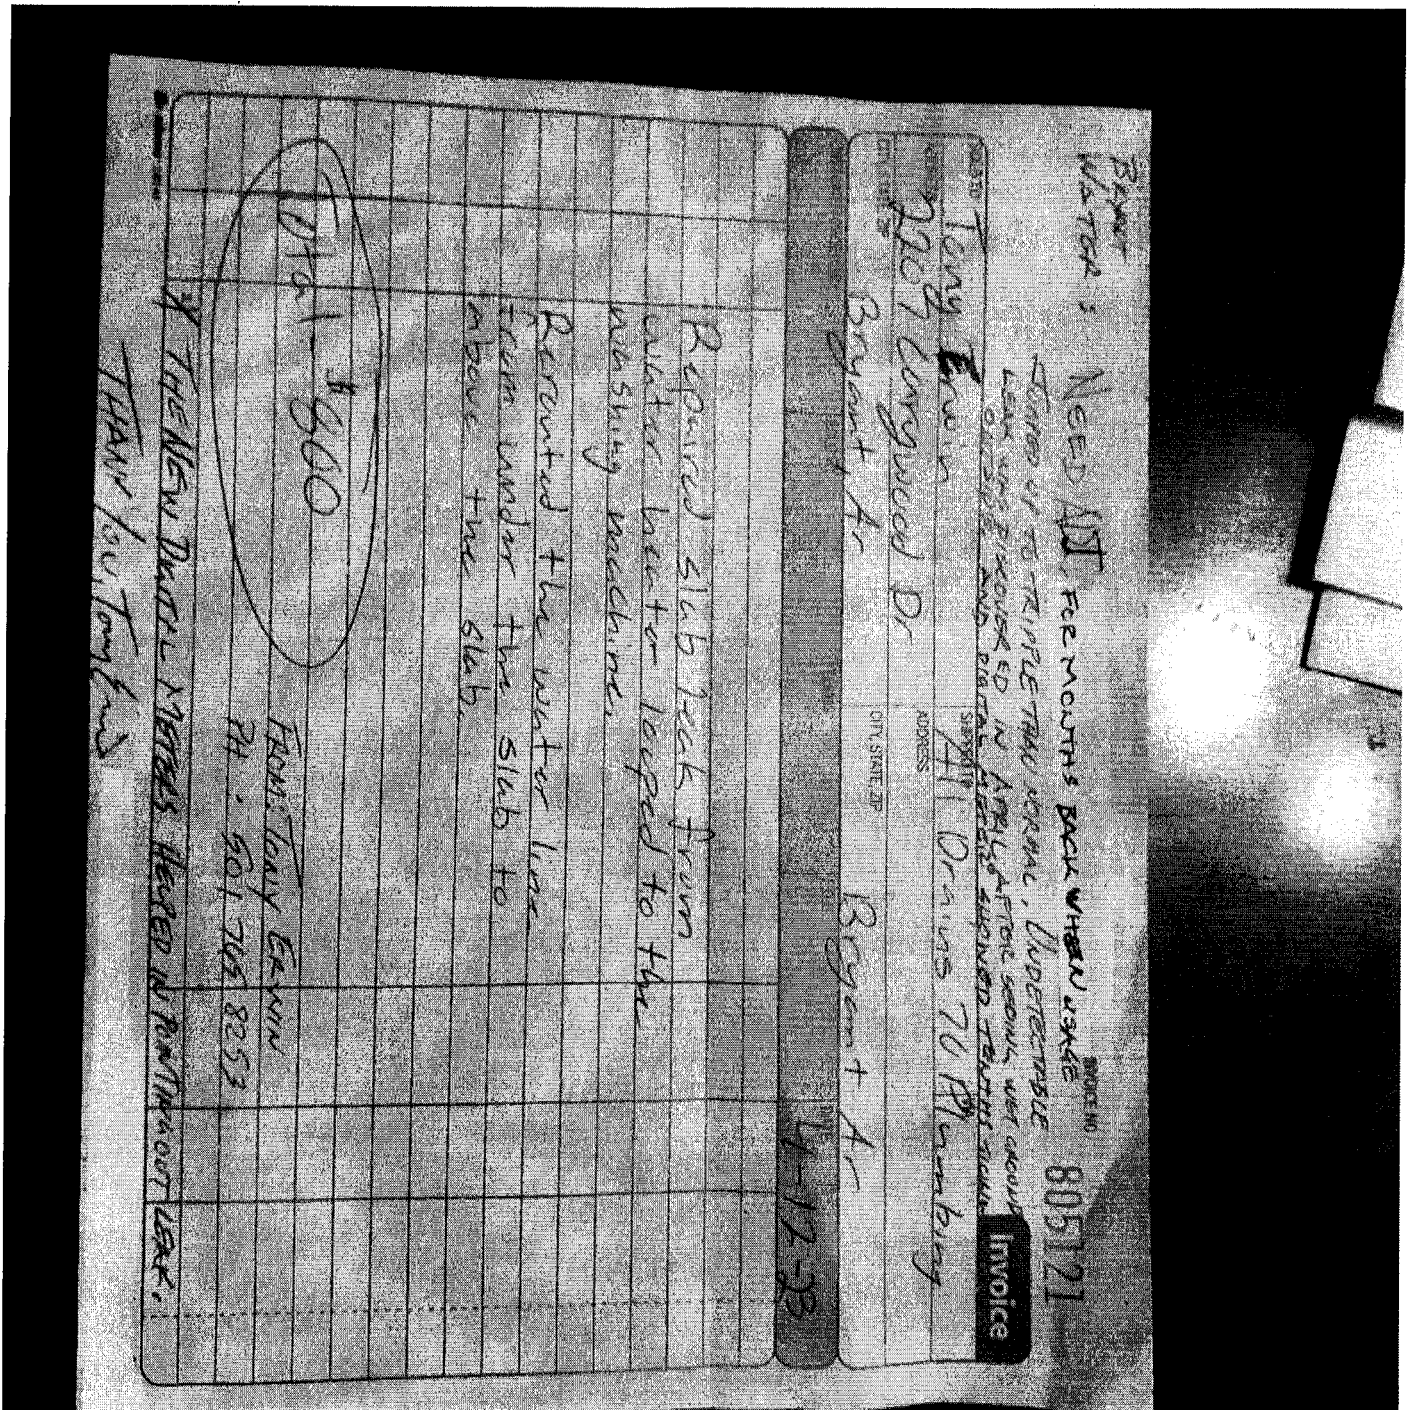 BRYANT
WATER :
NEED ADJ. FOR MONTHS BACK WHEN USAGE
JUMPED UP TO TRIPLE THAN NORMAL. UNDETECTABLE
LEAK WAS DISCOVERED IN APRIL AFTER SEEING WET GROUND
OUTSIDE AND DIGITAL METER SHOWED TENTHS
INVOICE NO.
805121
Invoice
SOLD TO
Tony Erwin
ADDRESS
2209 Dr
CITY, STATE, ZIP
Bryant, Ar
SHIP TO
All Drains To Plumbing
ADDRESS
CITY, STATE, ZIP
Bryant Ar
DATE
4-17-23
Repaired slab leak from
water heater loped to the
washing machine.
Rerouted the water line
from under the slab to
above the slab.
Total - $600
FROM: TONY ERWIN
PH. 501 765 8253
* THE NEW DIGITAL METERS HELPED IN POINTING OUT LEAK.
THANK YOU, Tony Erwin